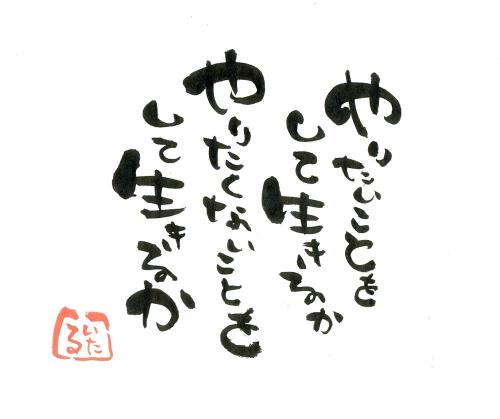 やりたいことを
して生きるか
やりたくないことを
して生きるか
いた
る